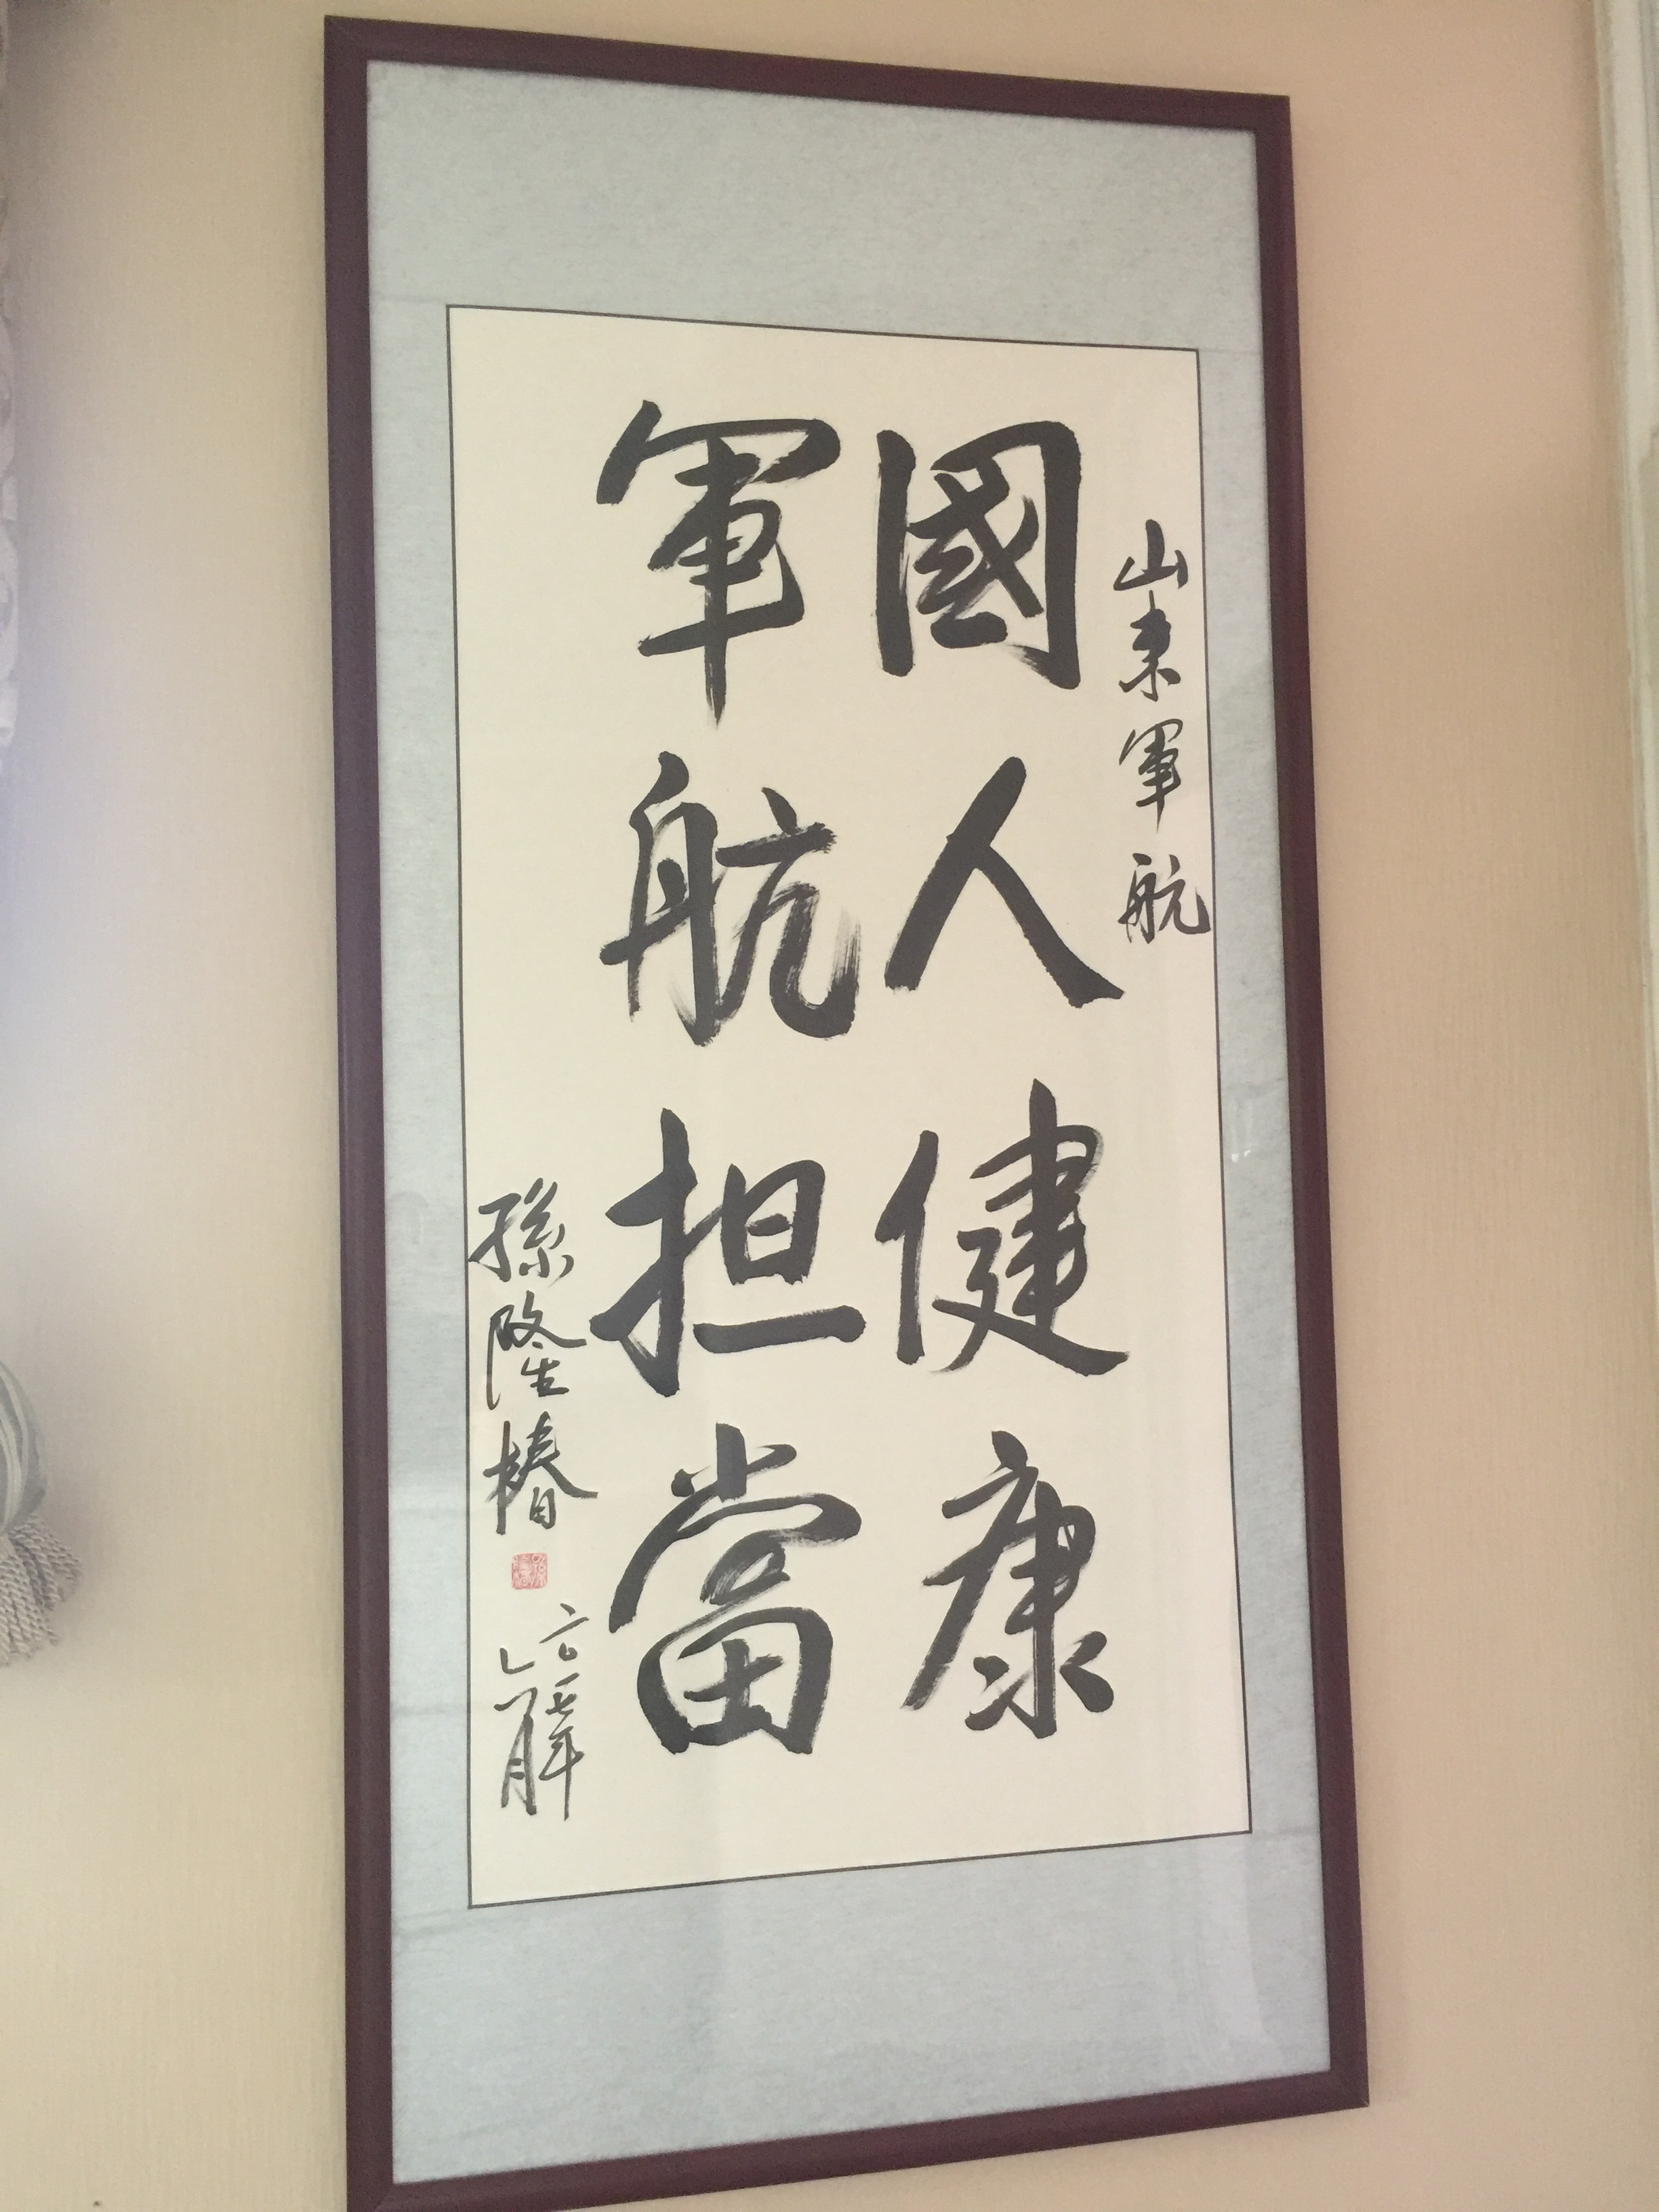 山東軍航
國人健康
軍航担當
孫隆椿
二〇一七年